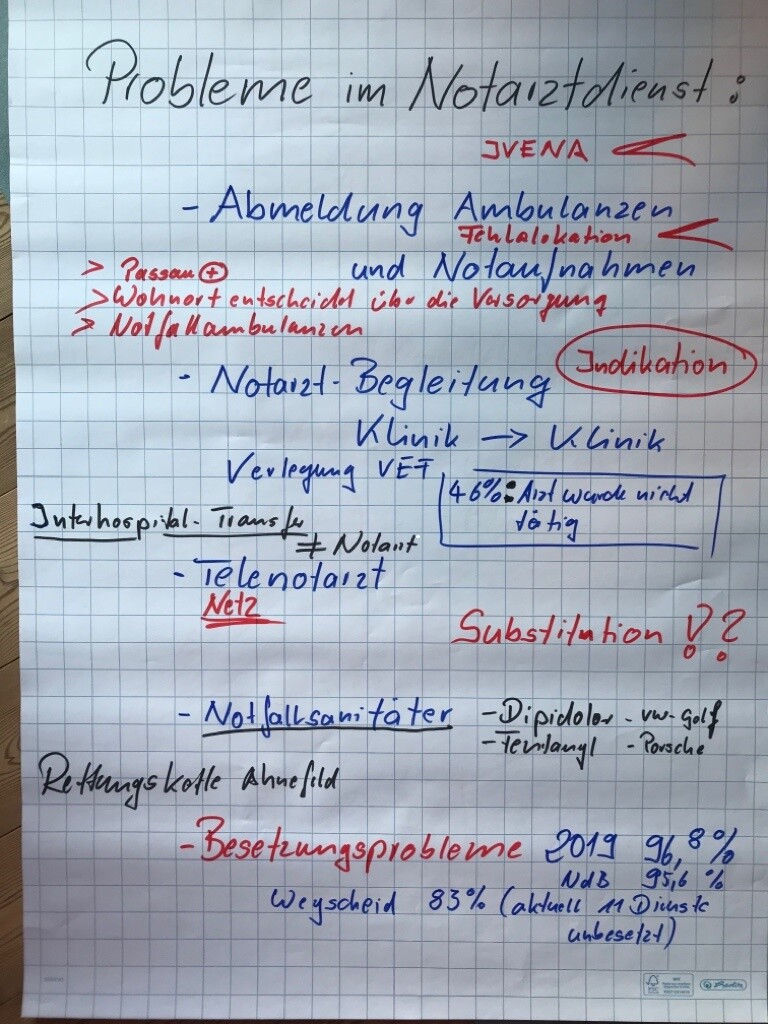 Probleme im Notarztdienst:
IVENA
- Abmeldung Ambulanzen
Fehlalokation
und Notaufnahmen
> Passau ⊕
> Wohnort entscheidet über die Versorgung
> Notfallambulanzen
Indikation
- Notarzt-Begleitung
Klinik → Klinik
Verlegung VEF
46%: Arzt wurde nicht
tätig
Interhospital-Transfer
≠ Notarzt
- Telenotarzt
Netz
Substitution !?
- Notfallsanitäter
- Dipidolor - VW-Golf
- Fentanyl - Porsche
Rettungskette Ahnefeld
- Besetzungsprobleme 2019 96,8%
NdB 95,6 %
Wegscheid 83% (aktuell 11 Dienste
unbesetzt)
FSC